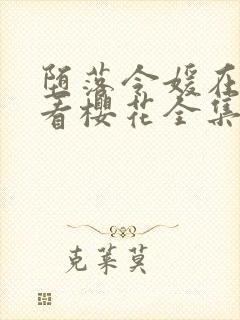 堕落令媛在
看樱花全集
克莱莫